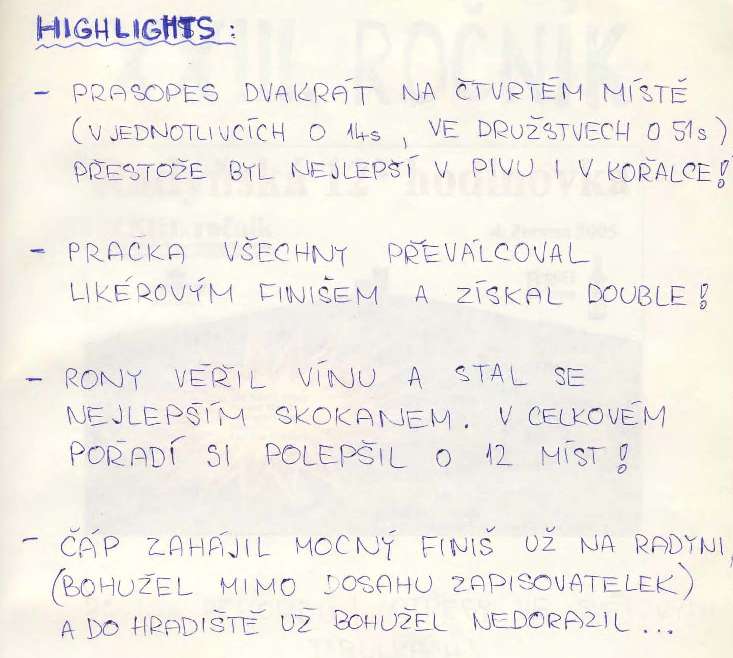 HIGHLIGHTS :
- PRASOPES DVAKRÁT NA ČTVRTÉM MÍSTĚ
(V JEDNOTLIVCÍCH O 14s , VE DRUŽSTVECH O 51s)
PŘESTOŽE BYL NEJLEPŠÍ V PIVU I V KOŘALCE!
- PRACKA VŠECHNY PŘEVÁLCOVAL
LIKÉROVÝM FINIŠEM A ZÍSKAL DOUBLE!
- RONY VĚŘIL VÍNU A STAL SE
NEJLEPŠÍM SKOKANEM. V CELKOVÉM
POŘADÍ SI POLEPŠIL O 12 MÍST!
- ČÁP ZAHÁJIL MOCNÝ FINIŠ UŽ NA RADYNI,
(BOHUŽEL MIMO DOSAHU ZAPISOVATELEK)
A DO HRADIŠTĚ UŽ BOHUŽEL NEDORAZIL...